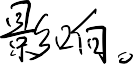 影响。